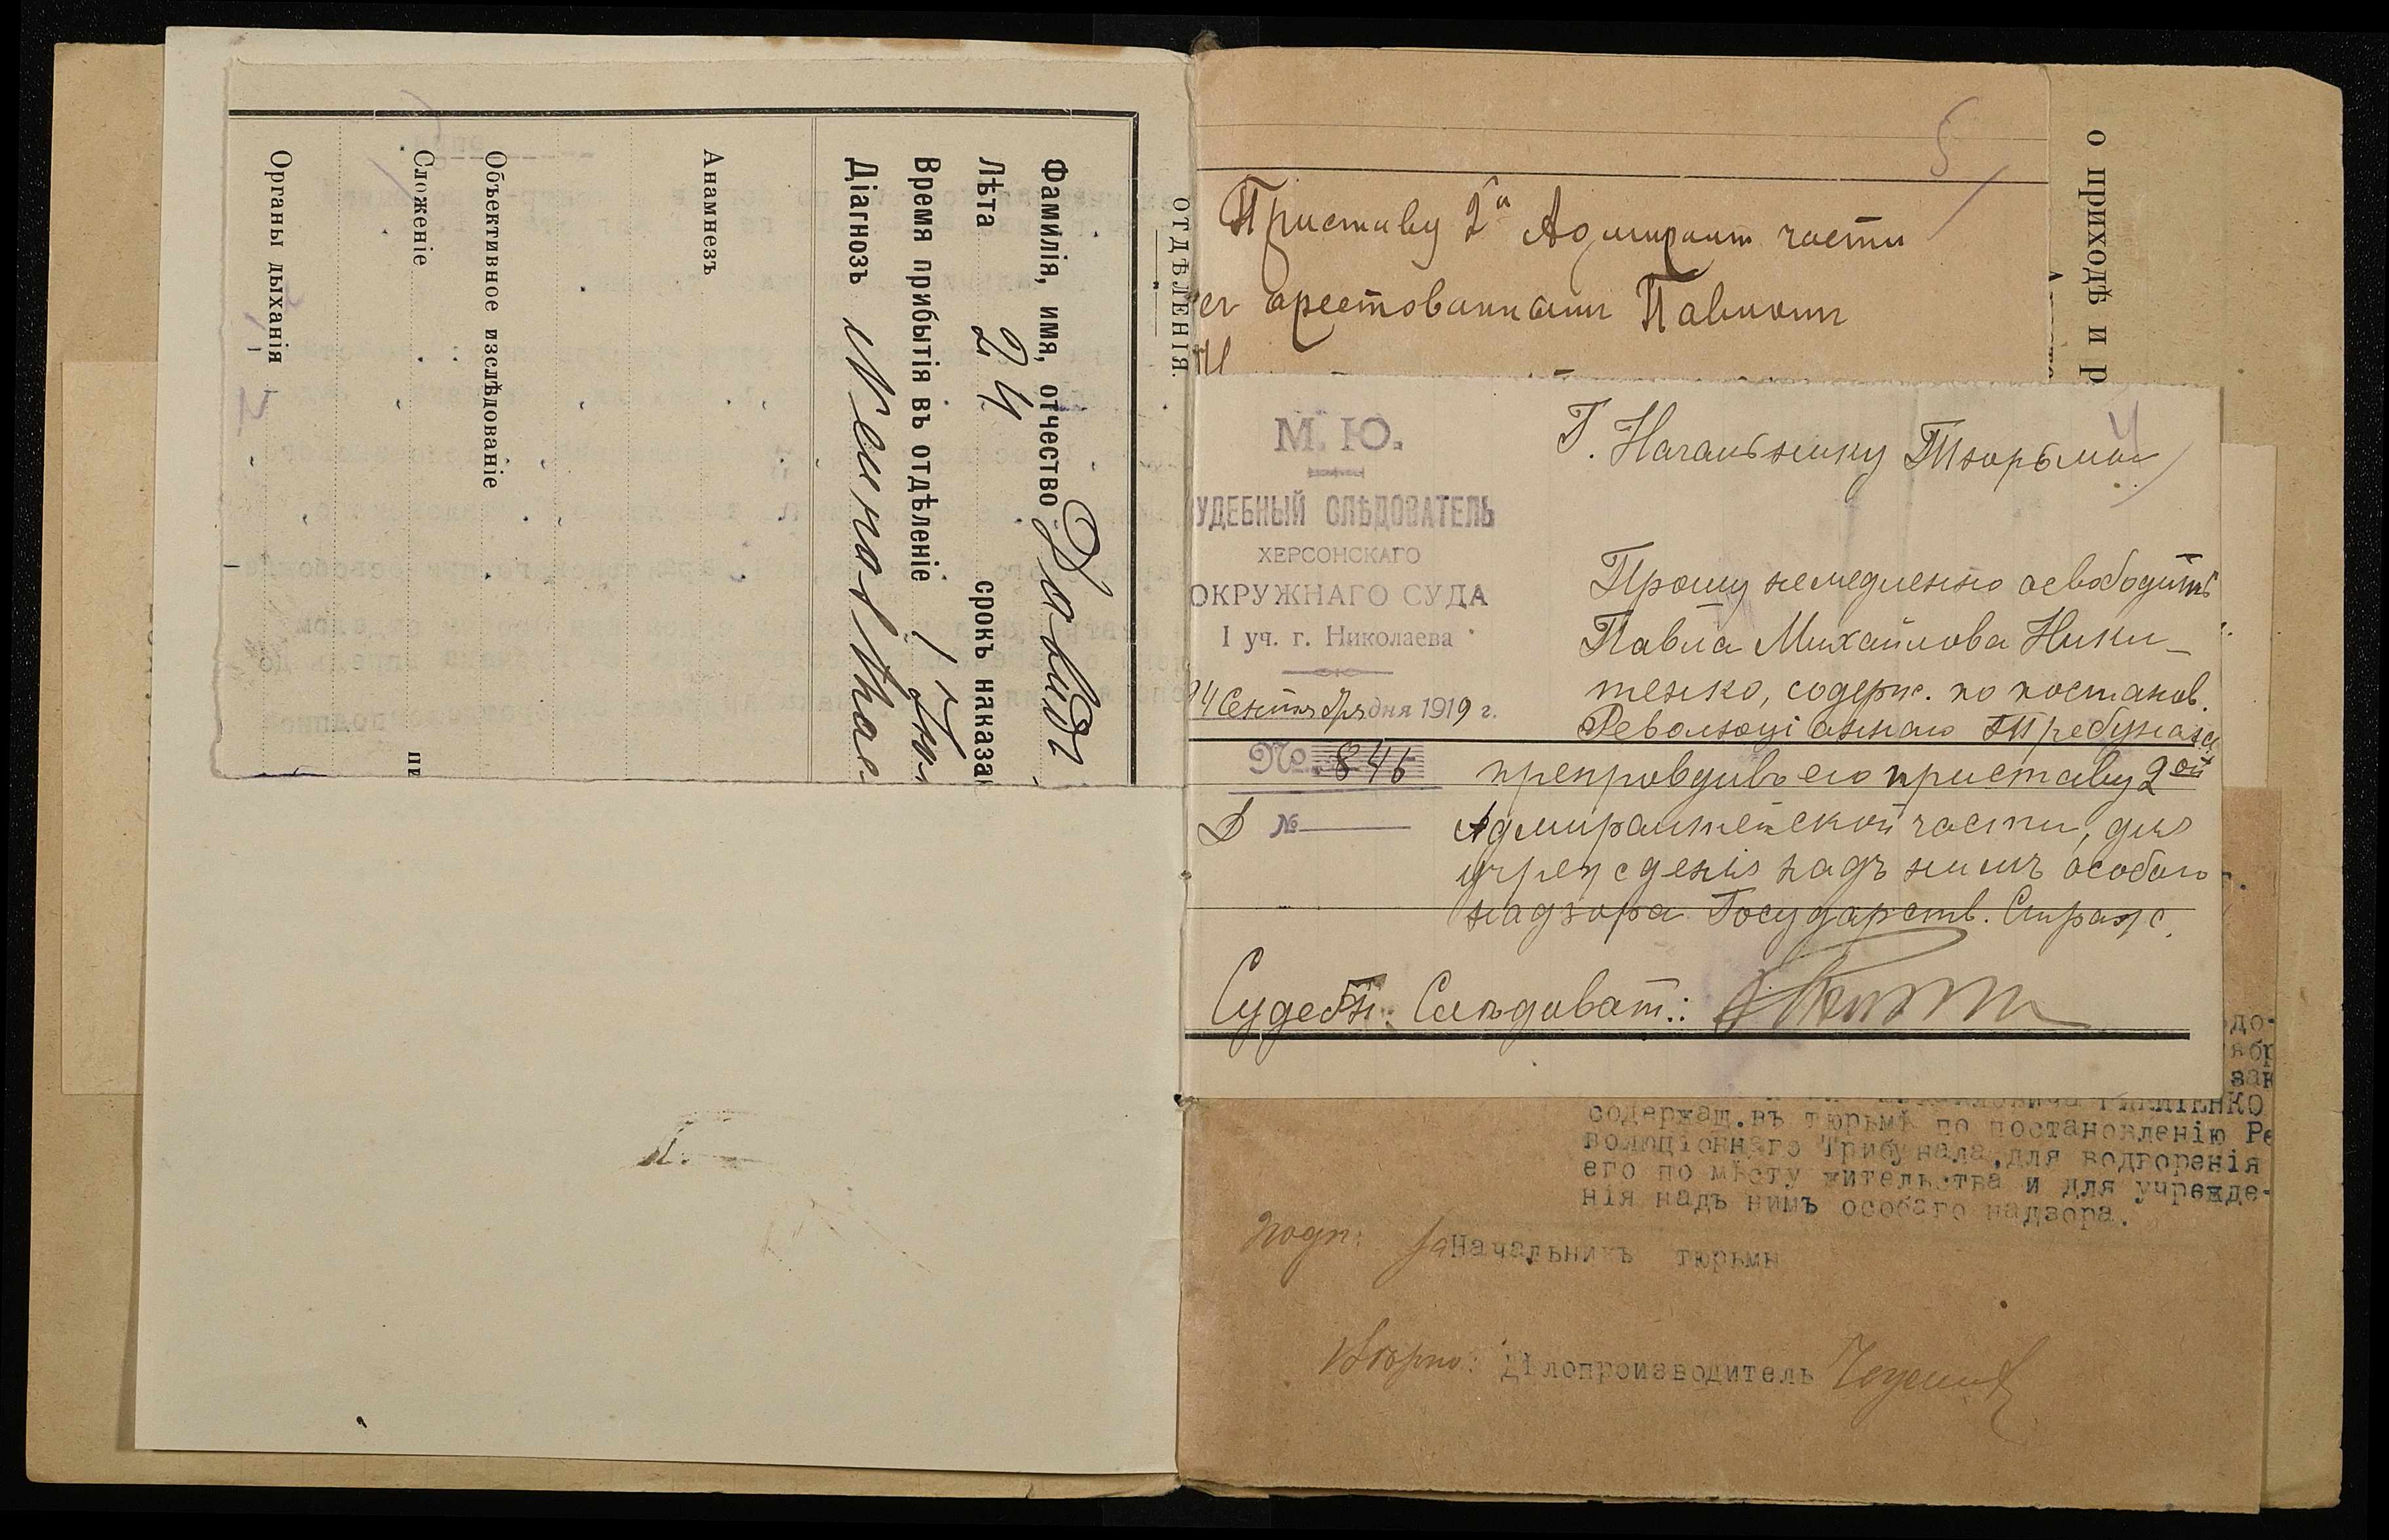 ОТДѢЛЕНІЯ.
Фамилія, имя, отчество Давидъ
Лѣта 24 срокъ наказа
Время прибытія въ отдѣленіе
Діагнозъ
Анамнезъ
Объективное изслѣдованіе
Сложеніе
Органы дыханія
5
Приставу 2й Адмиралт части
арестованнаго Павломъ
о приходѣ и р
4
М. Ю.
УДЕБНЫЙ СЛѢДОВАТЕЛЬ
ХЕРСОНСКАГО
ОКРУЖНАГО СУДА
I уч. г. Николаева
24 Сентября дня 1919 г.
№. 846
№
Г. Начальнику Тюрьмы
Прошу немедленно освободить
Павла Михайлова Ники-
тенко, содерж. по постанов.
Революціоннаго Трибунала
препроводивъ его приставу 2ой
Адмиралтейской части, для
учрежденія надъ нимъ особаго
надзора Государств. Страж.
Судебн. Слѣдоват.:
до-
ябр
зак
содержащ.въ тюрьмѣ по постановленію Ре
волюціоннаго Трибунала,для водворенія
его по мѣсту жительства и для учрежде-
нія надъ нимъ особаго надзора.
подп: за Начальникъ тюрьмы
Вѣрно: Дѣлопроизводитель